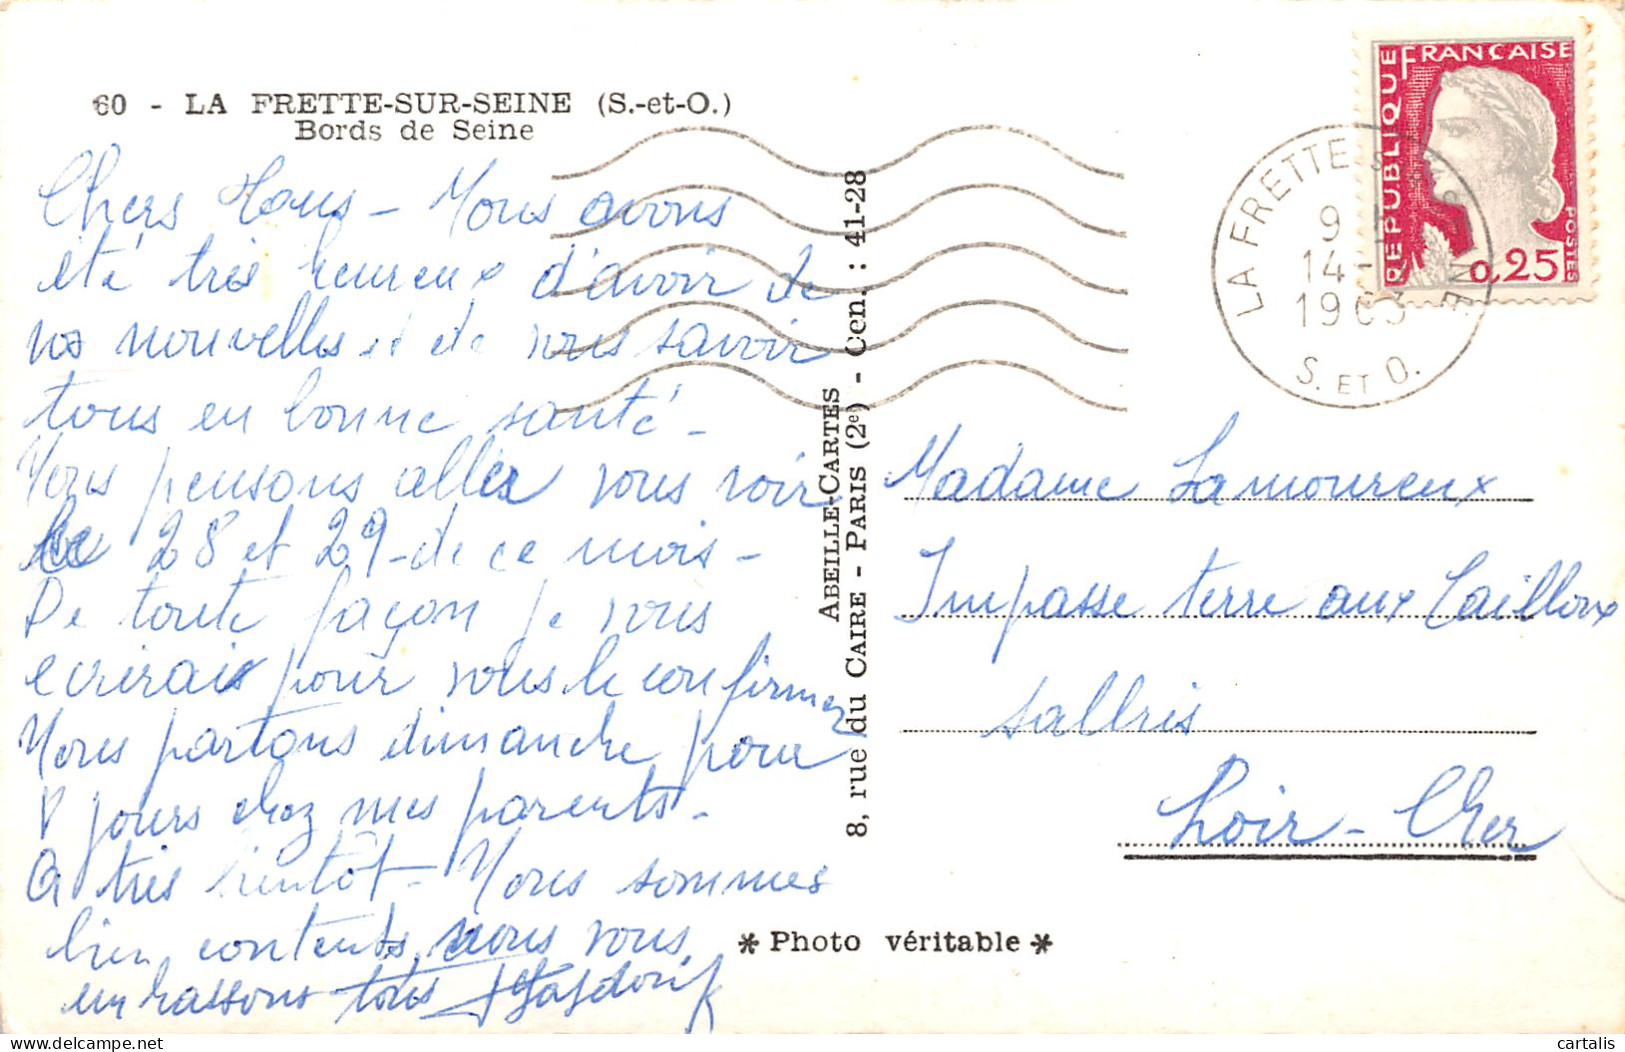 60 - LA FRETTE-SUR-SEINE (S.-et-O.)
Bords de Seine
Chers tous - Nous avons
été très heureux d'avoir de
vos nouvelles et de vous savoir
tous en bonne santé -
Nous pensons aller vous voir
le 28 et 29 - de ce mois -
De toute façon je vous
écrirais pour vous le confirmer
Nous partons dimanche pour
8 jours chez mes parents -
A très bientôt - Nous sommes
bien contents, nous vous
embrassons tous
ABEILLE-CARTES
8, rue du CAIRE - PARIS (2e) - Cen. : 41-28
REPUBLIQUE FRANÇAISE
POSTES
0,25
LA FRETTE S. SEINE
9
14-
1963
S. ET O.
Madame Lamoureux
Impasse terre aux Cailloux
Salbris
Loir-Cher
* Photo véritable *
cartalis